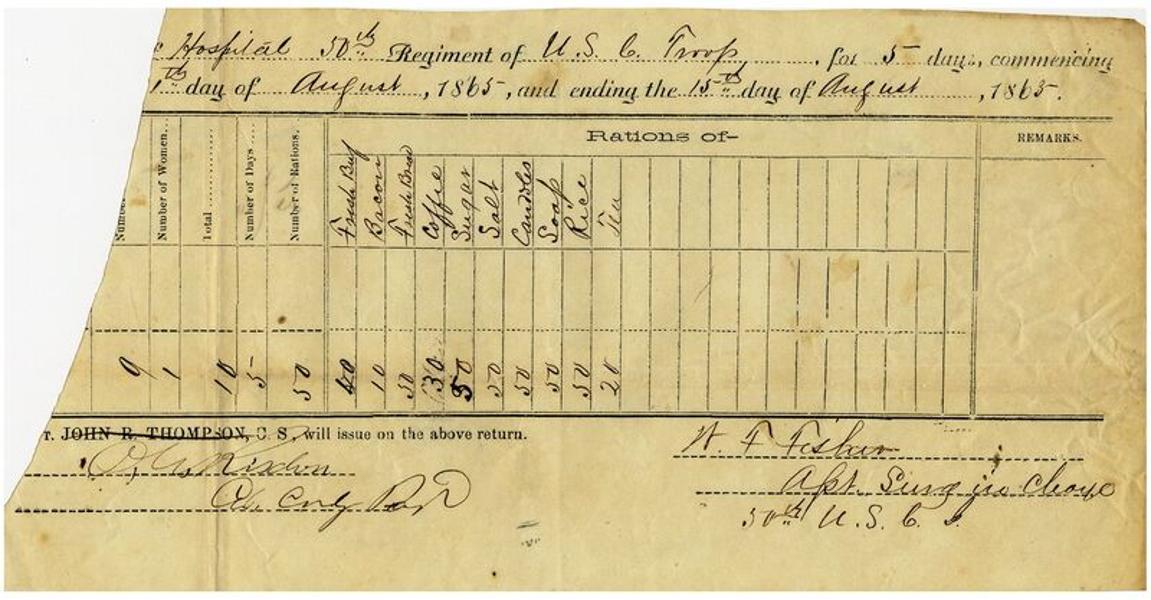 Hospital 50th Regiment of U. S. C. Troop, for 5 days, commencing
1th day of August, 1865, and ending the 15th day of August, 1865.
Rations of-
REMARKS.
Number
Number of Women...
Total
Number of Days...
Number of Rations.
Fresh Beef
Bacon
Fresh Bread
Coffie
Sugar
Salt
Candles
Soap
Rice
Tea
9 1 10 5 50 40 10 50 30 50 50 50 50 50 20
T. JOHN R. THOMPSON, C. S., will issue on the above return.
W. F. Fisher
Col. Comdg
Asst. Surg in Charge
50th U. S. C. I.